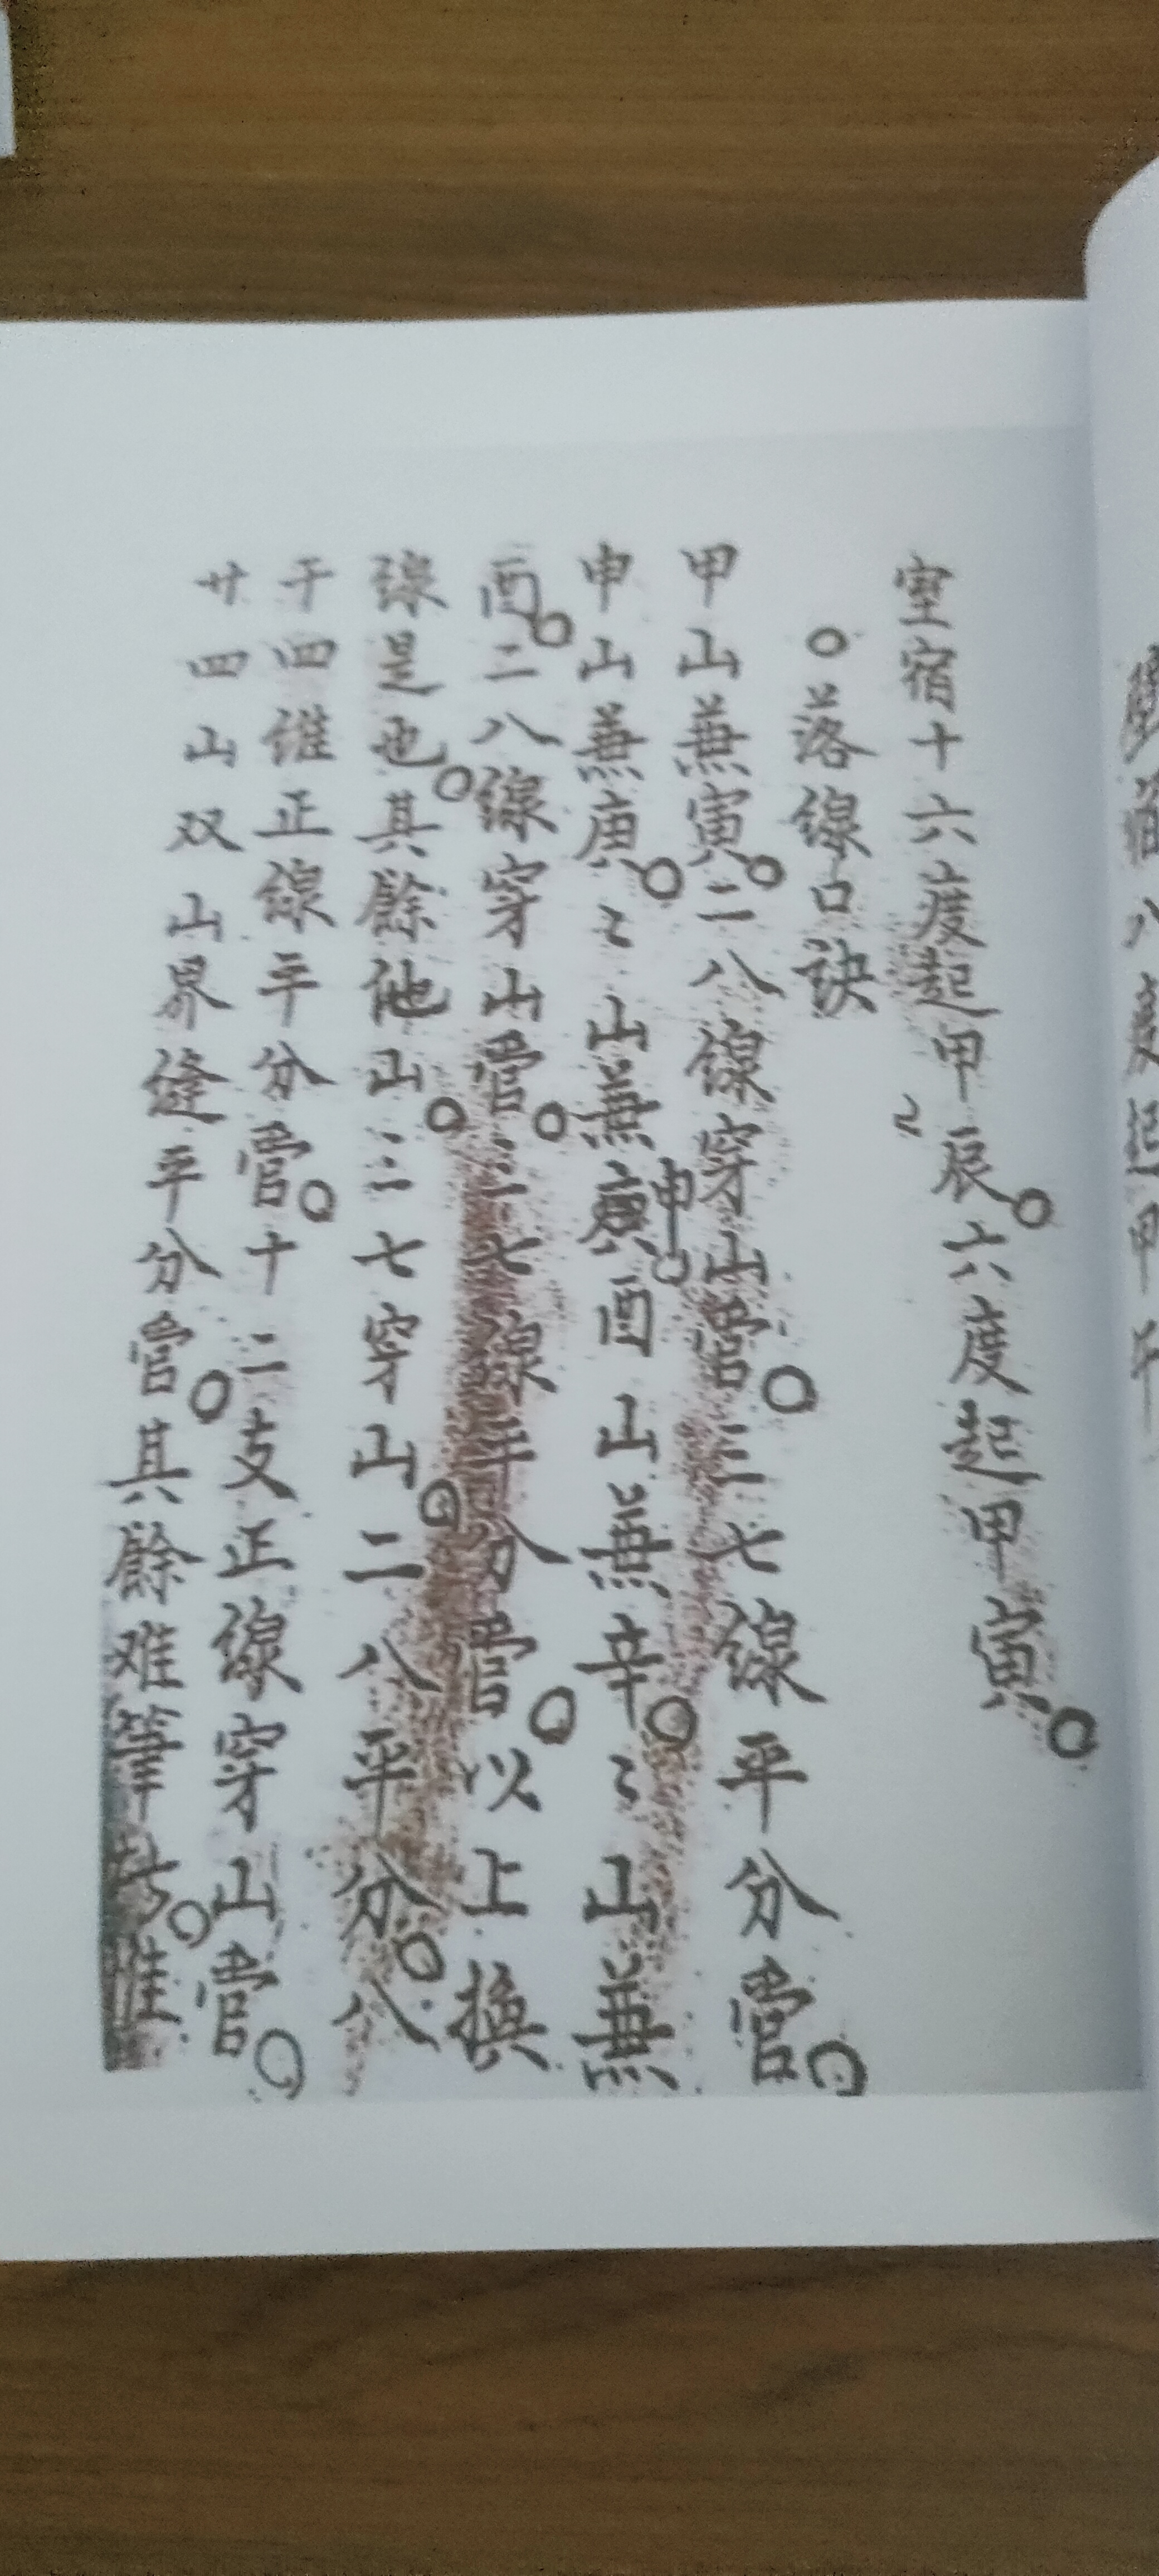 室宿十六度起甲辰。六度起甲寅。
○落線口訣
甲山兼寅。二八線穿山管。三七線平分管。
申山兼庚。〻山兼庚申。酉山兼辛。〻山兼
酉。二八線穿山管。三七線平分管。以上換
線是也。其餘他山。三七穿山。二八平分。八
干四維正線平分管。十二支正線穿山管。
廿四山双山界縫平分管。其餘难筆。惟
宿八度起甲午